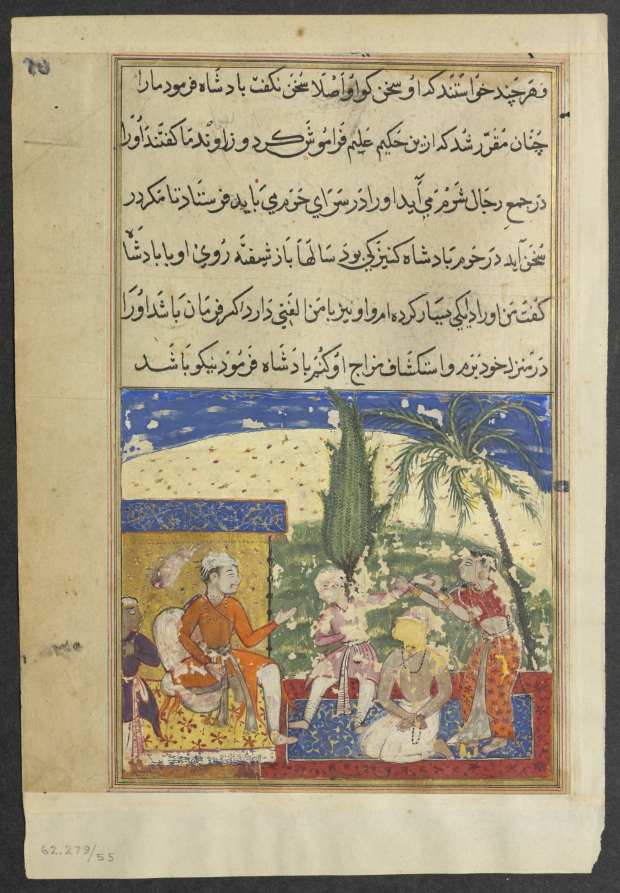 و هرچند خواستند که او سخن کوید او اصلا سخن نکفت بادشاه فرمود مارا
چنان مقرر شد که ازین حکیم علیم فراموش کرد وزاوند ما کفتند اورا
در جمع رجال شرم می آید اورا در سرای حرم می باید فرستاد تا مکر در
سخن آید در حرم بادشاه کنیزکی بود سالها باز شیفته روی او با بادشاه
کفت من اورا دیکی بسیار کرده ام و او نیز با من الفتی دارد اکر فرمان باشد اورا
در منزل خود برم و استکشاف مزاج او کنم بادشاه فرمود نیکو باشد
62.279/55